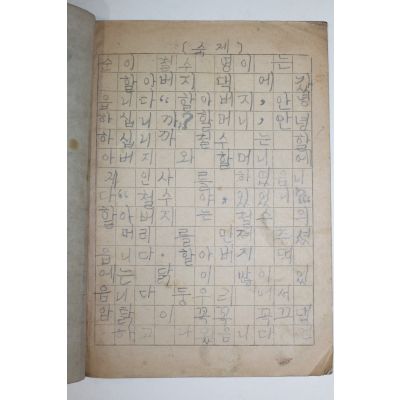 (숙제)
순이 철수 영이는
할아버지 댁에 갔
읍니다 “할아버지, 안녕
하십니까? 할머니, 안녕
하십니까 철수는 할
아버지와 할머니에
게 인사를 하였읍니
다 “철수야,
할아버지는 철수의
머리를 만져 주셨
읍니다. 할아버지 댁
에는 닭이 많이 있
읍니다 둥우리에서
암탉이 꼭꼭
하고 있읍니다